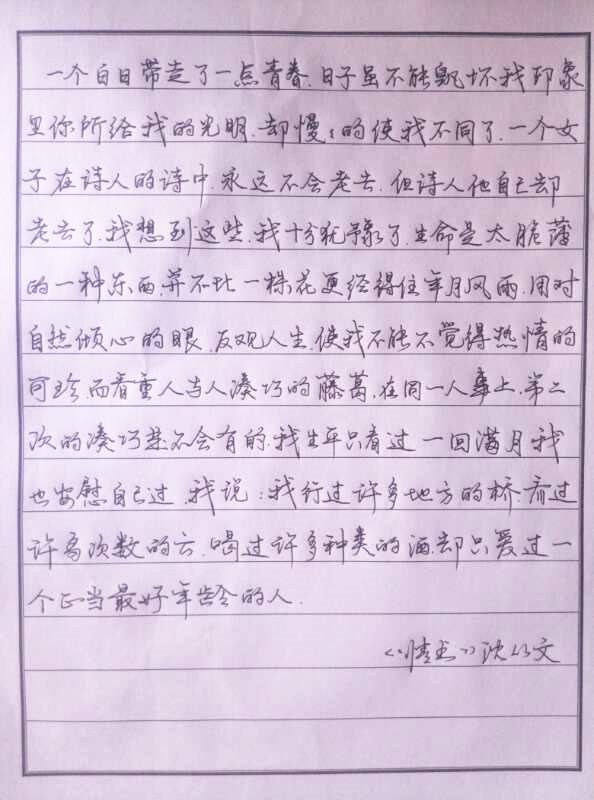 一个白日带走了一点青春.日子虽不能毁坏我印象
里你所给我的光明.却慢々的使我不同了.一个女
子在诗人的诗中.永远不会老去.但诗人他自己却
老去了.我想到这些.我十分犹豫了.生命是太脆薄
的一种东西.并不比一株花更经得住年月风雨.用对
自然倾心的眼.反观人生.使我不能不觉得热情的
可珍.而看重人与人凑巧的藤葛.在同一人事上.第二
次的凑巧是不会有的.我生平只看过一回满月.我
也安慰自己过.我说:我行过许多地方的桥.看过
许多次数的云.喝过许多种类的酒.却只爱过一
个正当最好年龄的人.
《情书》沈从文